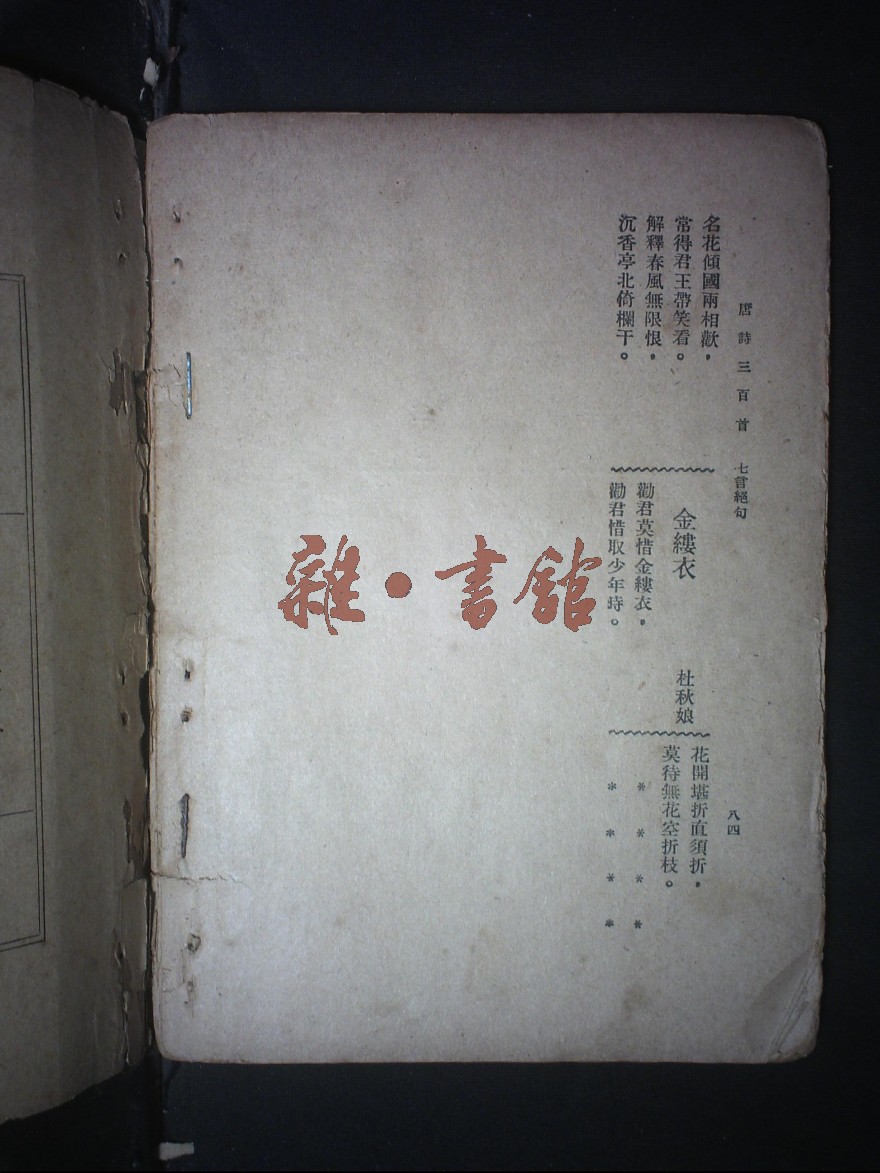 唐詩三百首 七言絕句 八四
名花傾國兩相歡，
常得君王帶笑看。
解釋春風無限恨，
沉香亭北倚欄干。
金縷衣 杜秋娘
勸君莫惜金縷衣，
勸君惜取少年時。
花開堪折直須折，
莫待無花空折枝。
* * * *
* * * *
雜·書館